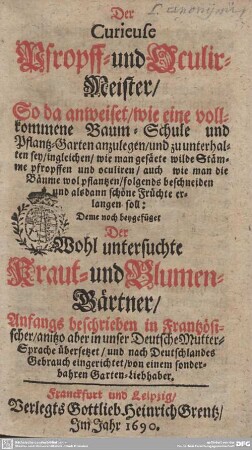 Der
Curieuse
Pfropff-und Oculir-
Meister/
So da anweiset/wie eine voll-
kommene Baum-Schule und
Pflantz-Garten anzulegen/und zu unterhal-
ten sey/ingleichen/ wie man gesäete wilde Stäm-
me pfropffen und oculiren/ auch wie man die
Bäume wol pflantzen/folgends beschneiden
und alsdann schöne Früchte er-
langen soll:
Deme noch beygefüget
Der
Wohl untersuchte
Kraut-und Blumen-
Gärtner/
Anfangs beschrieben in Frantzösi-
scher/anitzo aber in unser Deutsche Mutter-
Sprache übersetzet/ und nach Deutschlandes
Gebrauch eingerichtet/von einem sonder-
bahren Garten-Liebhaber.
Franckfurt und Leipzig/
Verlegts Gottlieb Heinrich Grentz/
Im Jahr 1690.